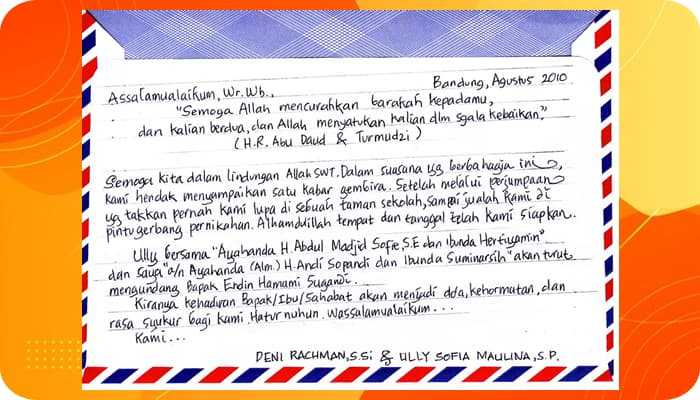 Bandung, Agustus 2010
Assalamualaikum, Wr. Wb.,
"Semoga Allah mencurahkan barakah kepadamu,
dan kalian berdua, dan Allah menyatukan kalian dlm sgala kebaikan."
(H.R. Abu Daud & Turmudzi)
Semoga kita dalam lindungan Allah SWT. Dalam suasana yg berbahagia ini,
kami hendak menyampaikan satu kabar gembira. Setelah melalui perjumpaan
yg takkan pernah kami lupa di sebuah taman sekolah, sampai jualah kami di
pintu gerbang pernikahan. Alhamdulillah tempat dan tanggal telah kami siapkan.
Ully bersama "Ayahanda H. Abdul Madjid Sofie, S.E dan Ibunda Herfiyamin"
dan saya "a/n Ayahanda (Alm.) H. Andi Sopandi dan Ibunda Suminarsih" akan turut
mengundang Bapak Endin Hamami Sugandi.
Kiranya kehadiran Bapak/Ibu/Sahabat akan menjadi doa, kehormatan, dan
rasa syukur bagi kami. Hatur nuhun. Wassalamualaikum...
Kami...
DENI RACHMAN, S.Si & ULLY SOFIA MAULINA, S.P.